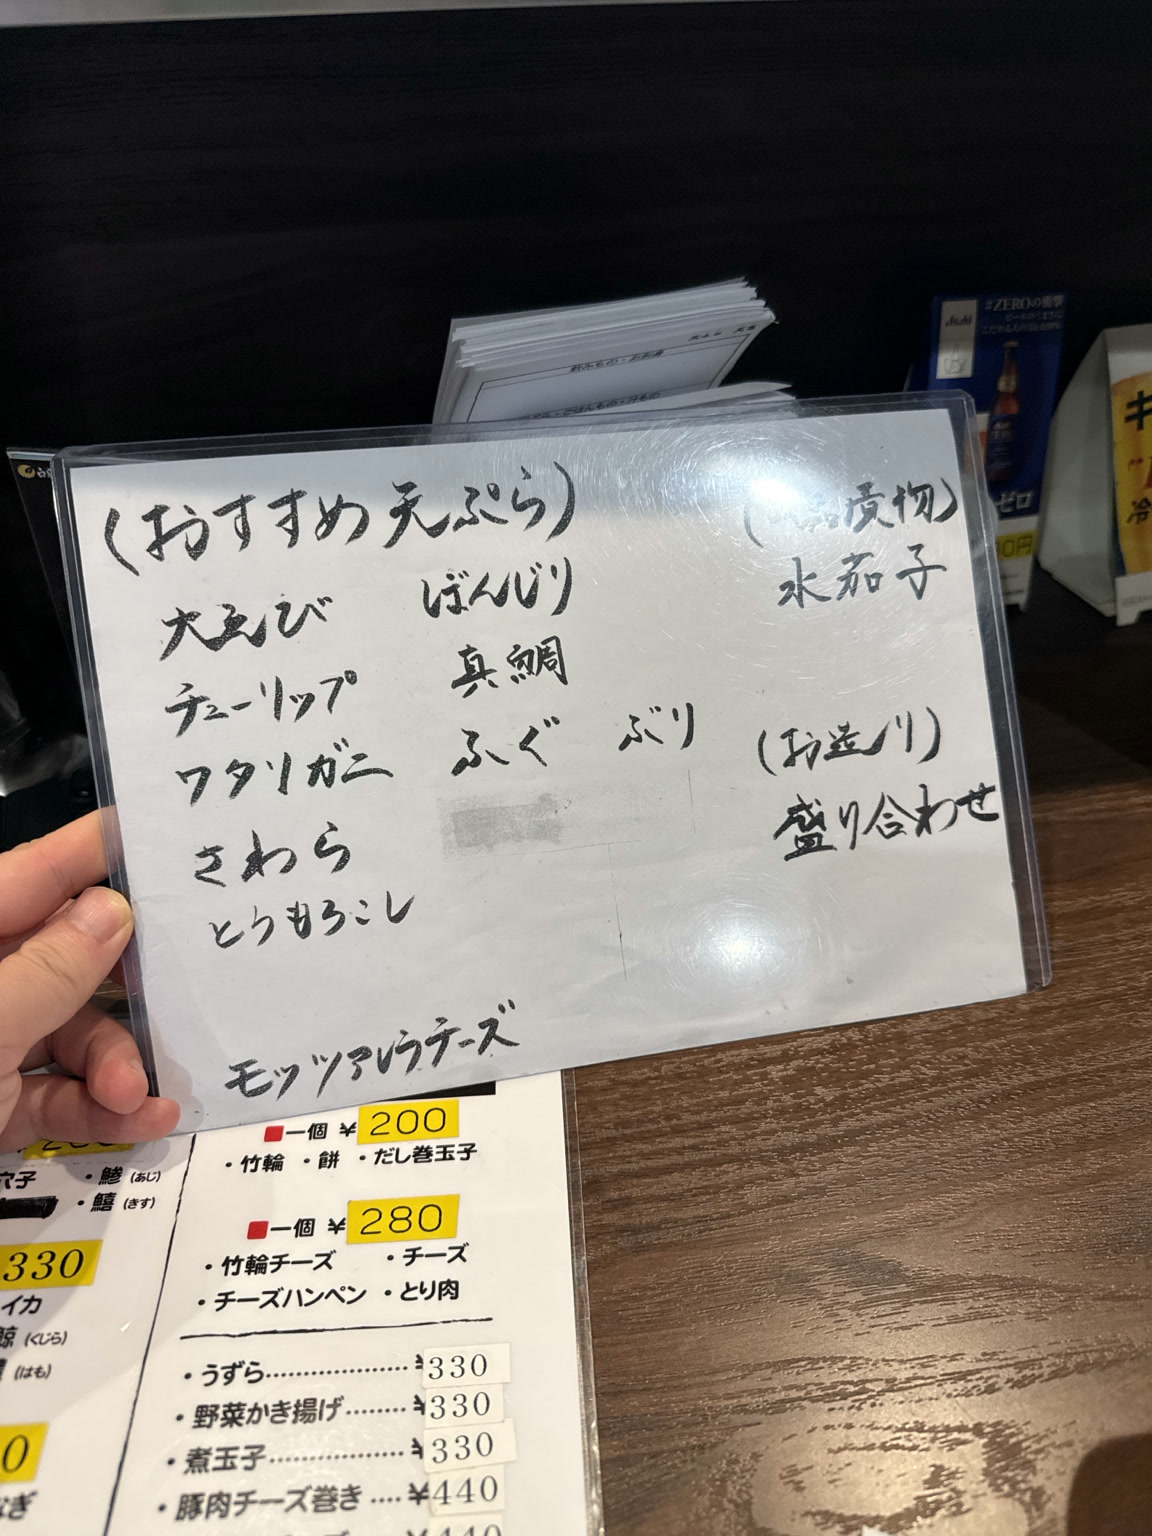 (おすすめ天ぷら)
大ゑび
チューリップ
ワタリガニ
さわら
とうもろこし
モッツァレラチーズ
ぼんじり
真鯛
ふぐ ぶり
漬物)
水茄子
(お造り)
盛り合わせ
#ZEROの衝撃
Asahi
ゼロ
■一個 ¥200
・竹輪 ・餅 ・だし巻玉子
■一個 ¥280
・竹輪チーズ ・チーズ
・チーズハンペン ・とり肉
・うずら ¥330
・野菜かき揚げ ¥330
・煮玉子 ¥330
・豚肉チーズ巻き ¥440
穴子 ・鯵(あじ)
・鱚(きす)
330
イカ
(くじら)
(はも)